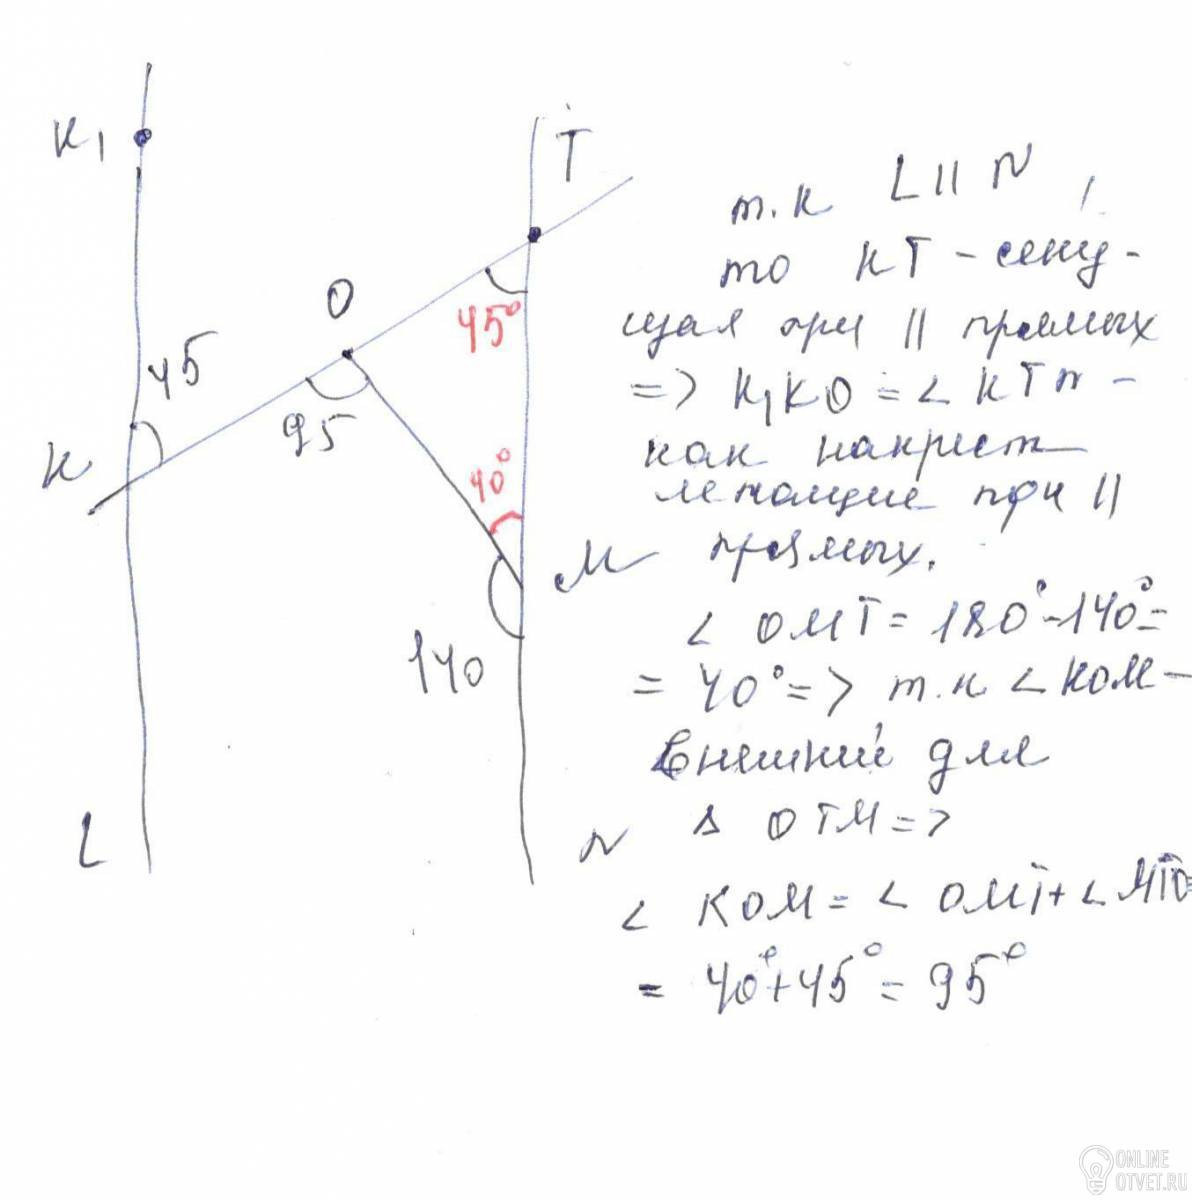 K₁
T
O
45°
45
95
K
40°
M
140
L
N
т.к L || N,
то KT - секу-
щая при || прямых
=> K₁KO = ∠ KTN -
как накрест
лежащие при ||
прямых.
∠ OMT = 180° - 140° =
= 40° => т.к ∠ KOM -
внешний для
Δ OTM =>
∠ KOM = ∠ OMT + ∠ MTO =
= 40° + 45° = 95°
ONLINE
OTVET.RU